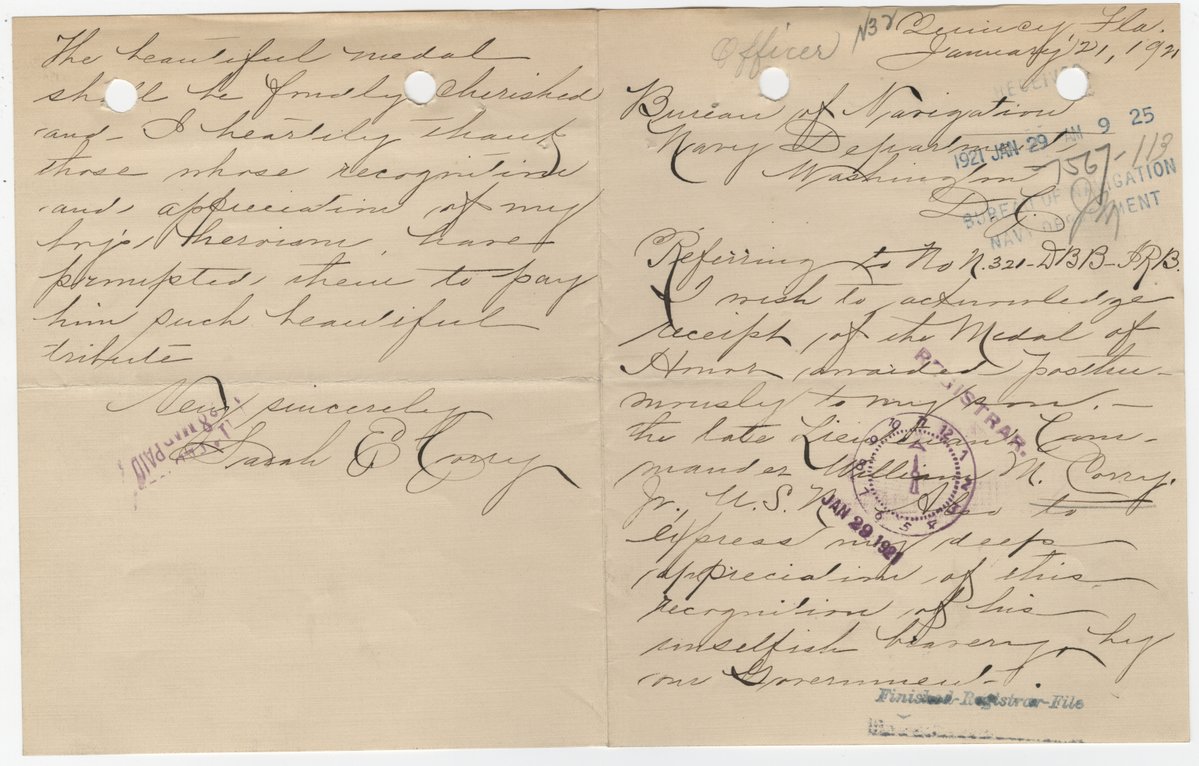 Officer N32
Quincy, Fla.
January 21, 1921
RECEIVED
Bureau of Navigation
Navy Department
Washington
D C
1921 JAN 29 AM 9 25
7567-113
BUREAU OF NAVIGATION
NAVY DEPARTMENT
Referring to No N.321-DBB-ARB.
I wish to acknowledge
receipt of the Medal of
Honor awarded Posthu-
mously to my son. —
the late Lieutenant Com-
mander William M. Corry.
Jr. U.S.N. Also to
express my deep
appreciation of this
recognition of his
unselfish bravery, by
our Government.
REGISTRAR.
11 12 1 2 3 4 5 6 7 8 9 10
JAN 29 1921
Finished-Registrar-File
The beautiful medal
shall be fondly cherished
and I heartily thank
those whose recognition
and appreciation of my
boy's heroism, have
prompted them to pay
him such beautiful
tribute
Very sincerely
Sarah E Corry
PAID